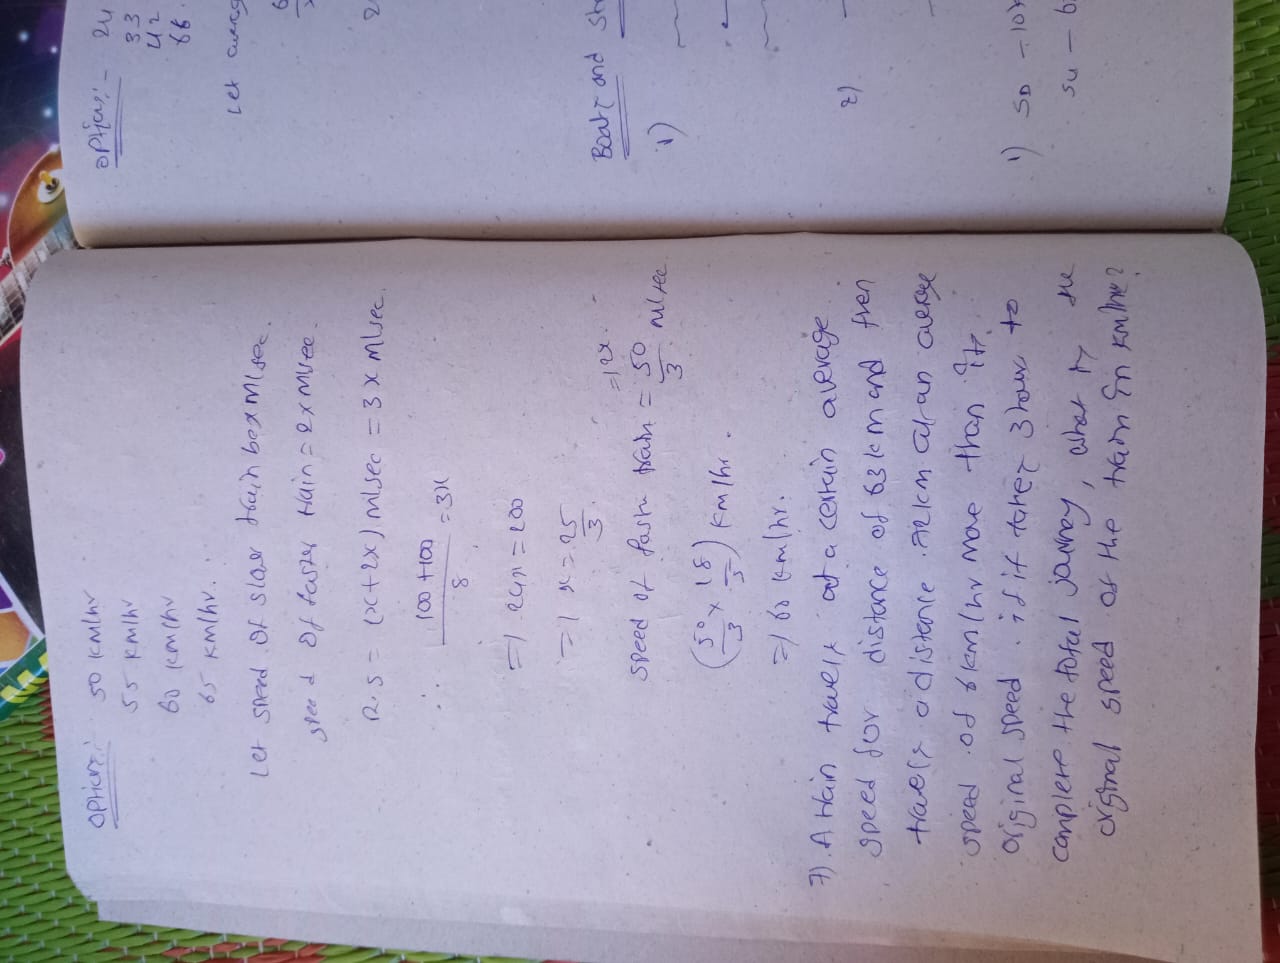 Options:- 50 km/hr
55 km/hr
60 km/hr
65 km/hr.
Let speed of slower train be x m/sec.
speed of faster train = 2x m/sec.
R.S = (x+2x) m/sec = 3x m/sec.
∴ 100+100/8 = 3x
=> 24x = 200
=> x = 25/3.
= 2x
speed of faster train = 50/3 m/sec
(50/3 x 18/5) km/hr.
=> 60 km/hr.
7). A train travels at a certain average
speed for distance of 63 km and then
travels a distance 72 km at an average
speed of 6 km/hr more than its
original speed. if it takes 3 hours to
complete the total journey, what is the
original speed of the train in km/hr?
options:- 24
33
42
66.
Let average
Boats and
1)
2)
1) SD - 10
SU - 6